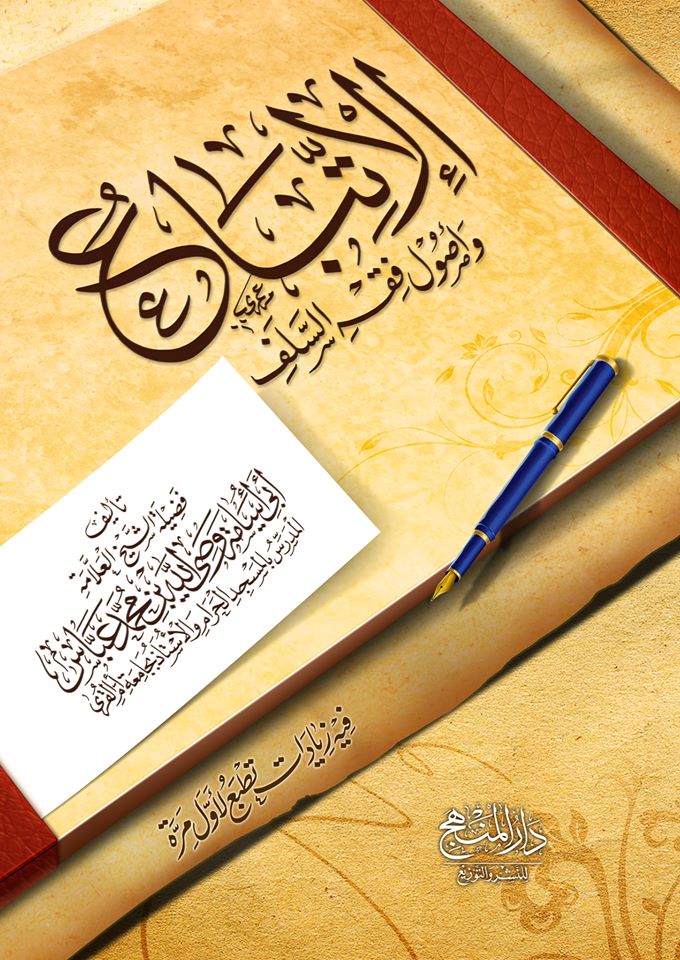 الإتِّبَاع
وأصُول فِقْهِ السَّلَفِ
تأليف
فَضيلَة الشَّيْخ العلَّامَة
أبي أسَامَة وَصيّ اللَّه بن مُحمَّد عَبَّاس
المدرّس بالمسجد الحرام والأستاذ بجامعة أم القرى
فِيْهِ زِيَادَات تُطبَع لأوَّل مَرَّة
دَارُ المَنْهَج
للنشر والتوزيع